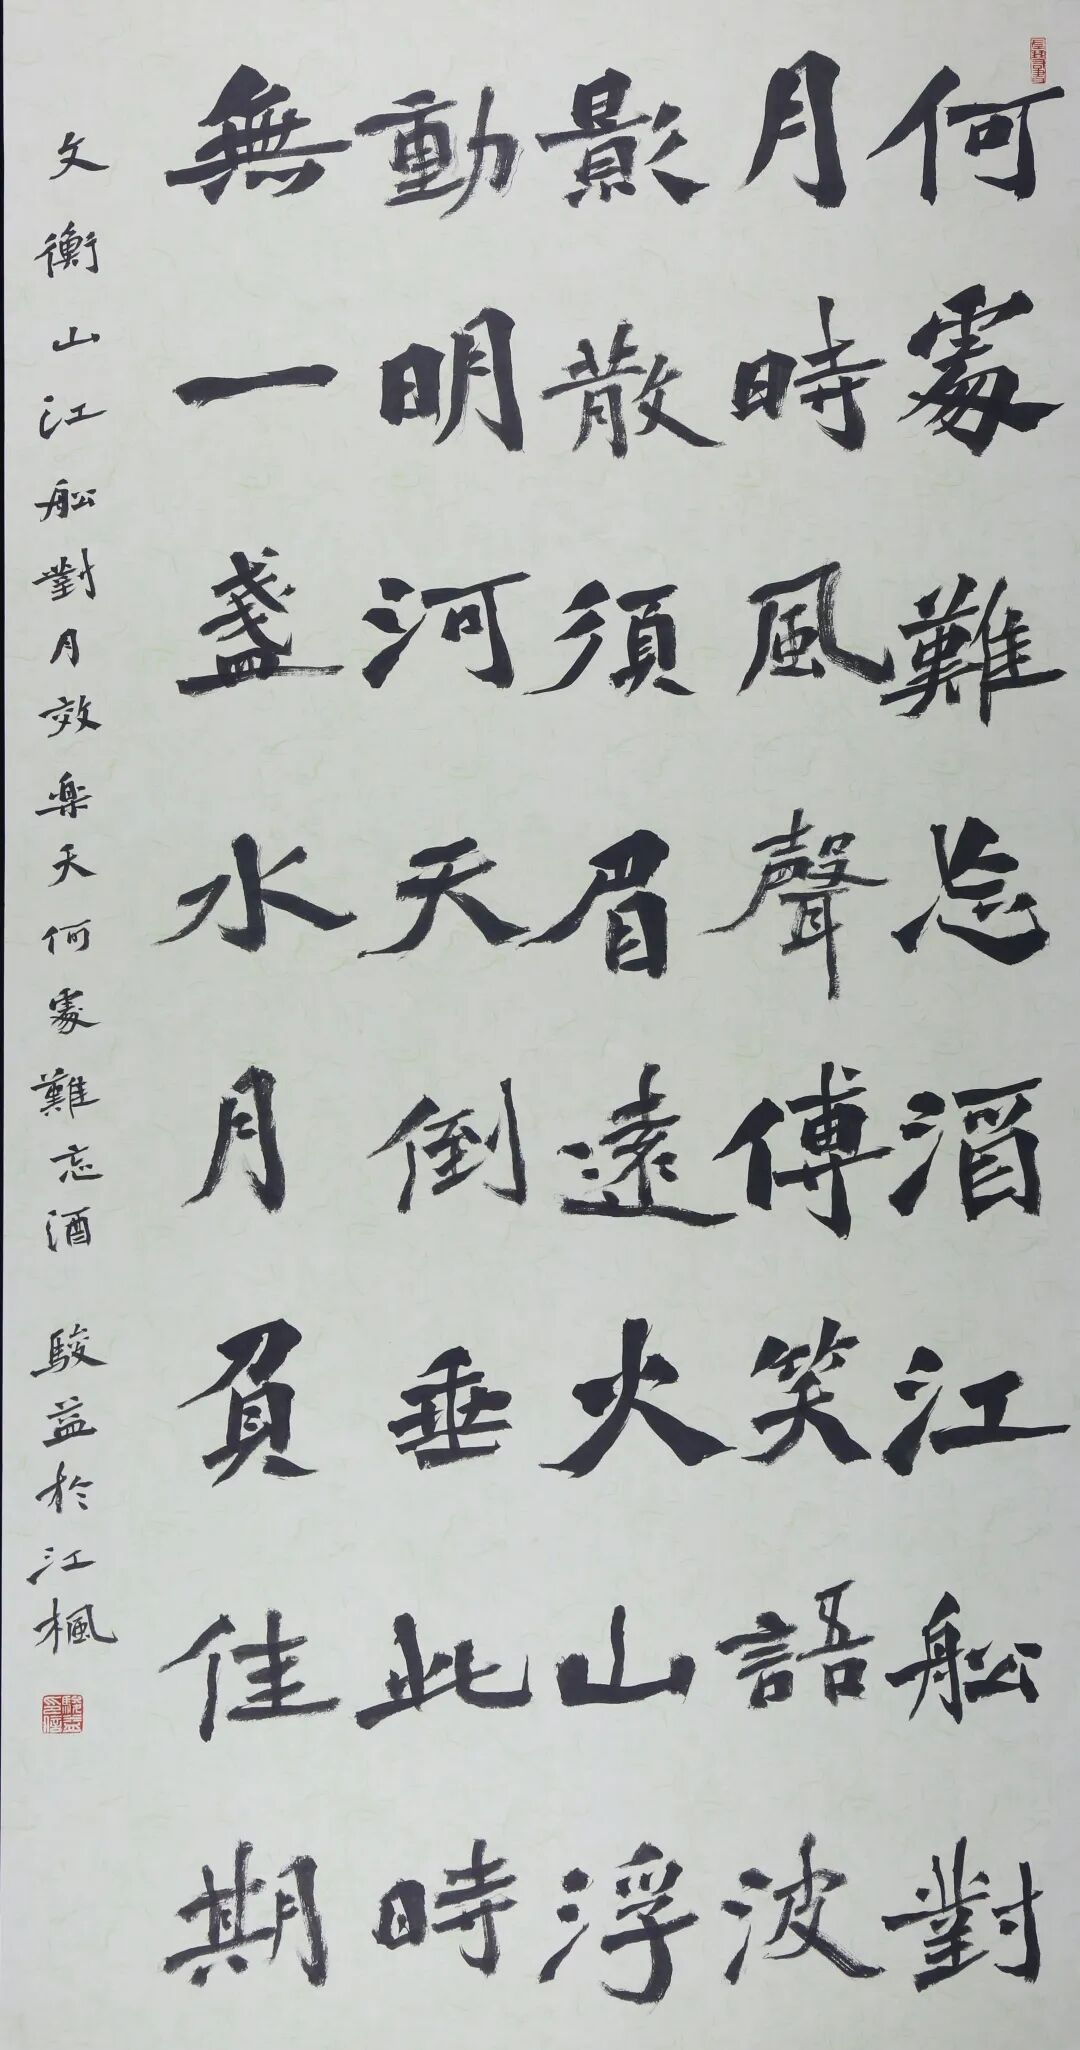 何處難忘酒江舩對
月時風聲傳笑語波
影散須眉遠火山浮
動明河天倒垂此時
無一盞水月負佳期
文衡山江舩對月效樂天何處難忘酒 駿益於江楓